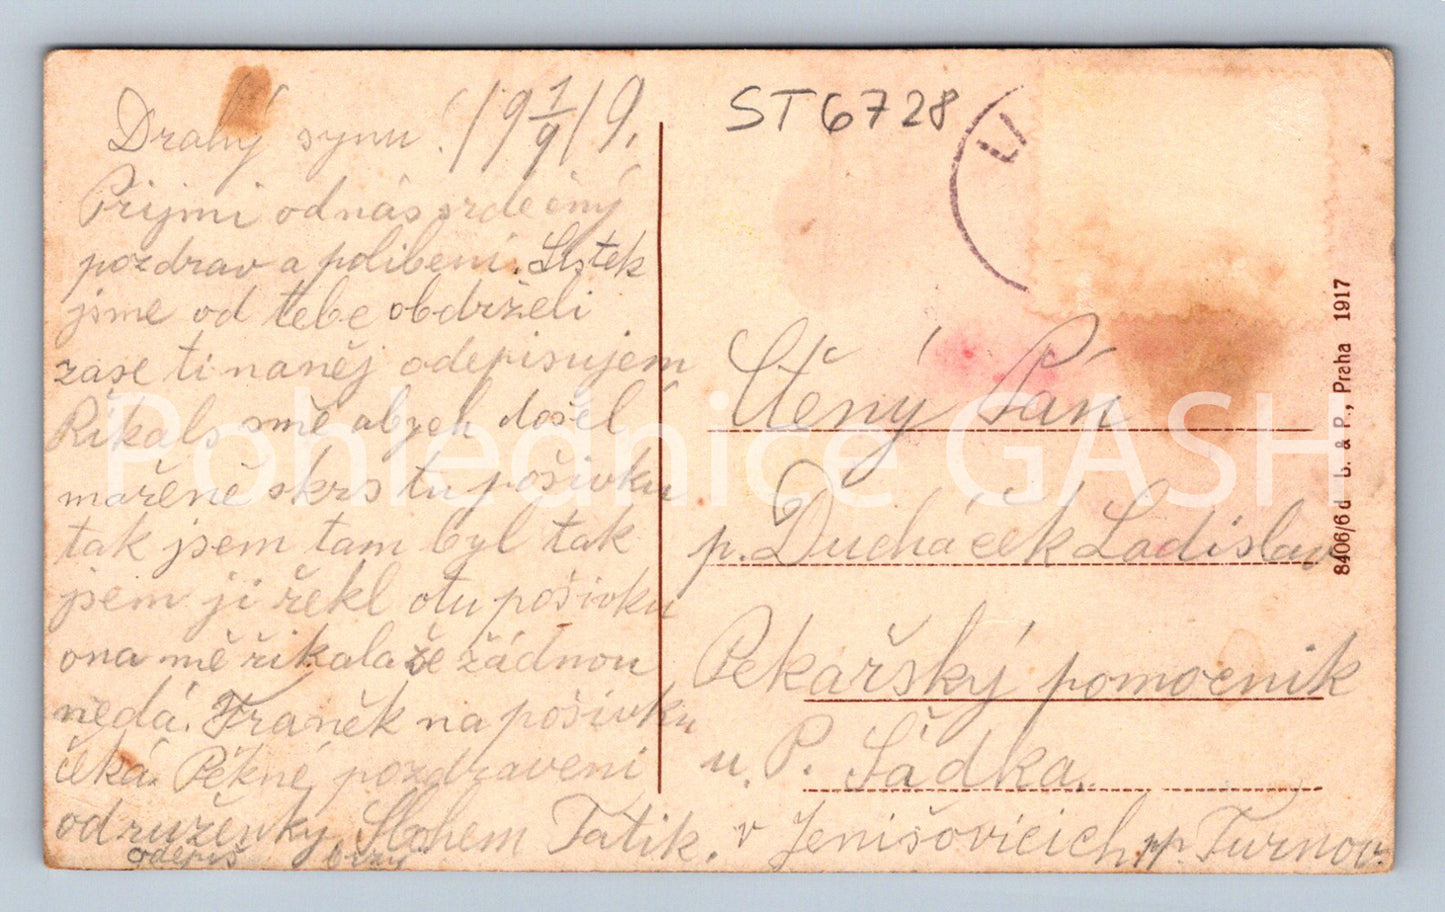 Drahý synu. 19 1/9 19.
Přijmi od nás srdečný
pozdrav a polibení. Lístek
jsme od tebe obdrželi
zase ti naněj odepisujem
Řikals mě abych došel
mařeně skrs tu pošivku
tak jsem tam byl tak
jsem ji řekl otu pošivku
ona mě řikala že žádnou
nedá. Franěk na pošivku
čeká. Pěkné pozdraveni
od ruženky Sbohem Tatik.
odepiš brzy
ST6728
Ctěný Pán
p. Ducháček Ladislav
Pekařský pomocnik
u. P. Sádka.
v Jenišovicich, p. Turnov.
8406/6d L. & P., Praha 1917
Pohlednice GASH